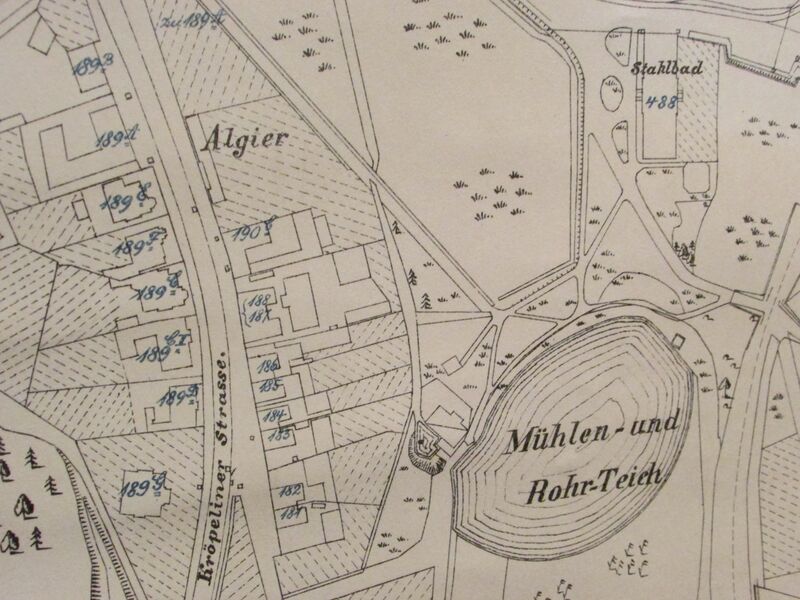 zu 189 A
189 B
Stahlbad
488
189 A
Algier
189
190
189
188
187
189
189
186
185
189 D
184
183
Mühlen- und
Rohr-Teich
Kröpeliner Strasse.
189 G
182
181